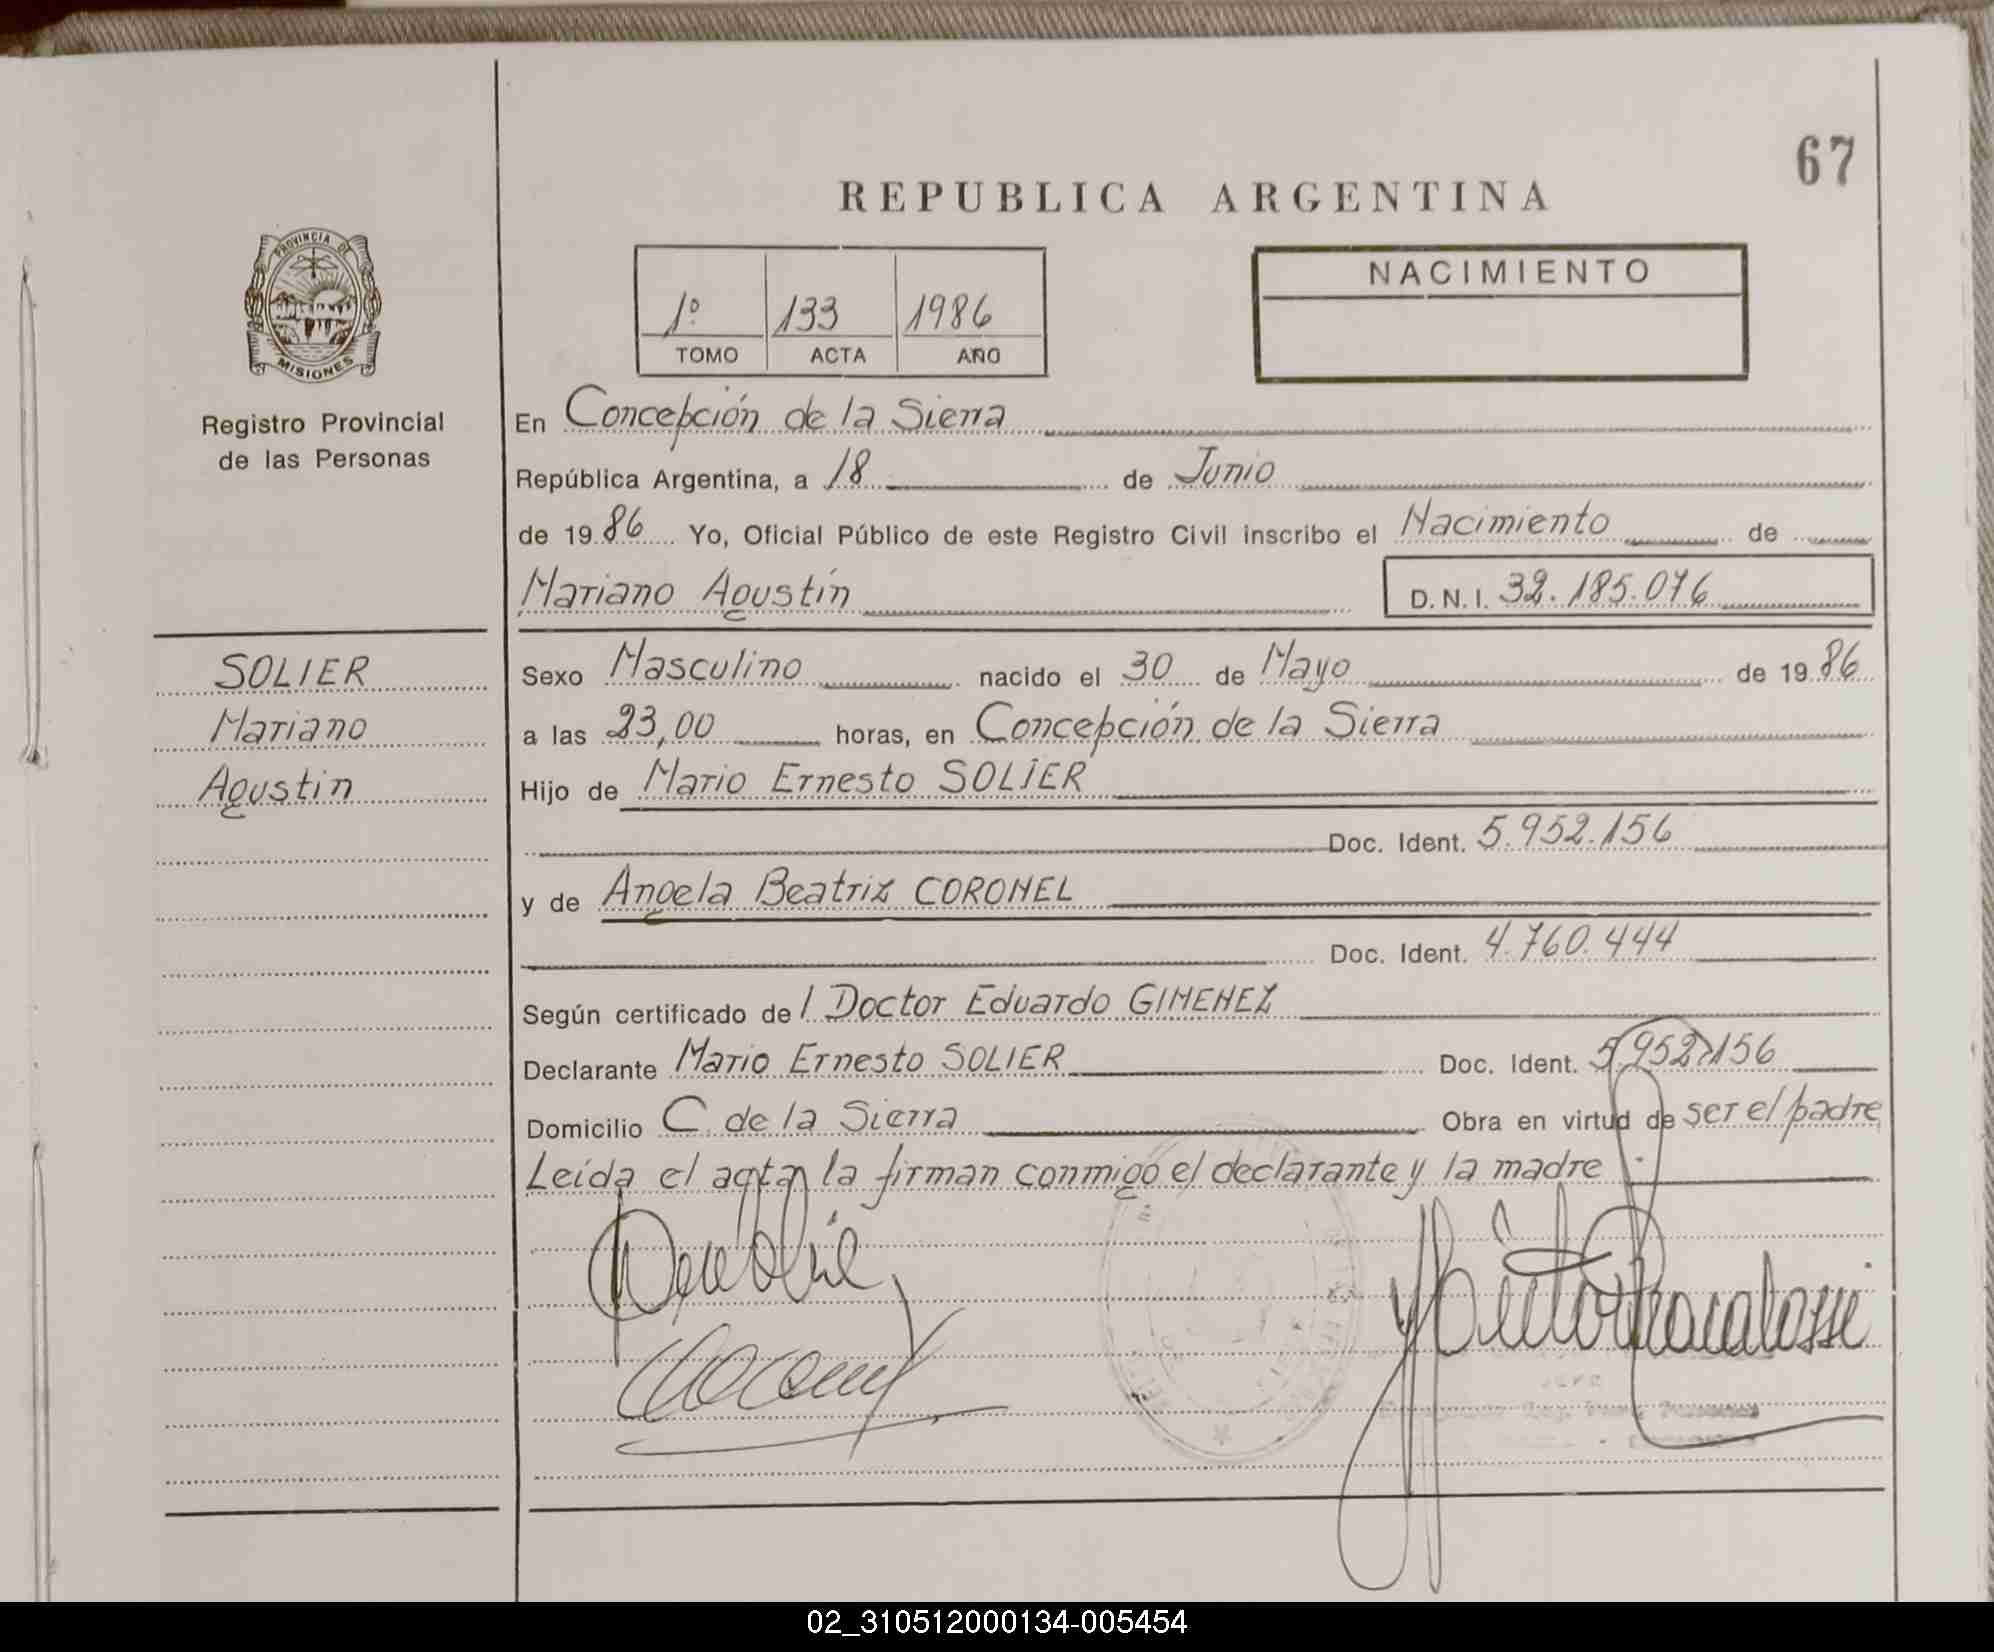 67
REPUBLICA ARGENTINA
PROVINCIA DE
MISIONES
Registro Provincial
de las Personas
1º 133 1986
TOMO ACTA AÑO
NACIMIENTO
En Concepción de la Sierra
República Argentina, a 18 de Junio
de 1986 Yo, Oficial Público de este Registro Civil inscribo el Nacimiento de
Mariano Agustín D.N.I. 32.185.076
SOLIER
Mariano
Agustin
Sexo Masculino nacido el 30 de Mayo de 1986
a las 23,00 horas, en Concepción de la Sierra
Hijo de Mario Ernesto SOLIER
Doc. Ident. 5.952.156
y de Angela Beatriz CORONEL
Doc. Ident. 4.760.444
Según certificado del Doctor Eduardo GIMENEZ
Declarante Mario Ernesto SOLIER Doc. Ident. 5.952.156
Domicilio C. de la Sierra Obra en virtud de ser el padre
Leída el acta la firman conmigo el declarante y la madre
02_310512000134-005454